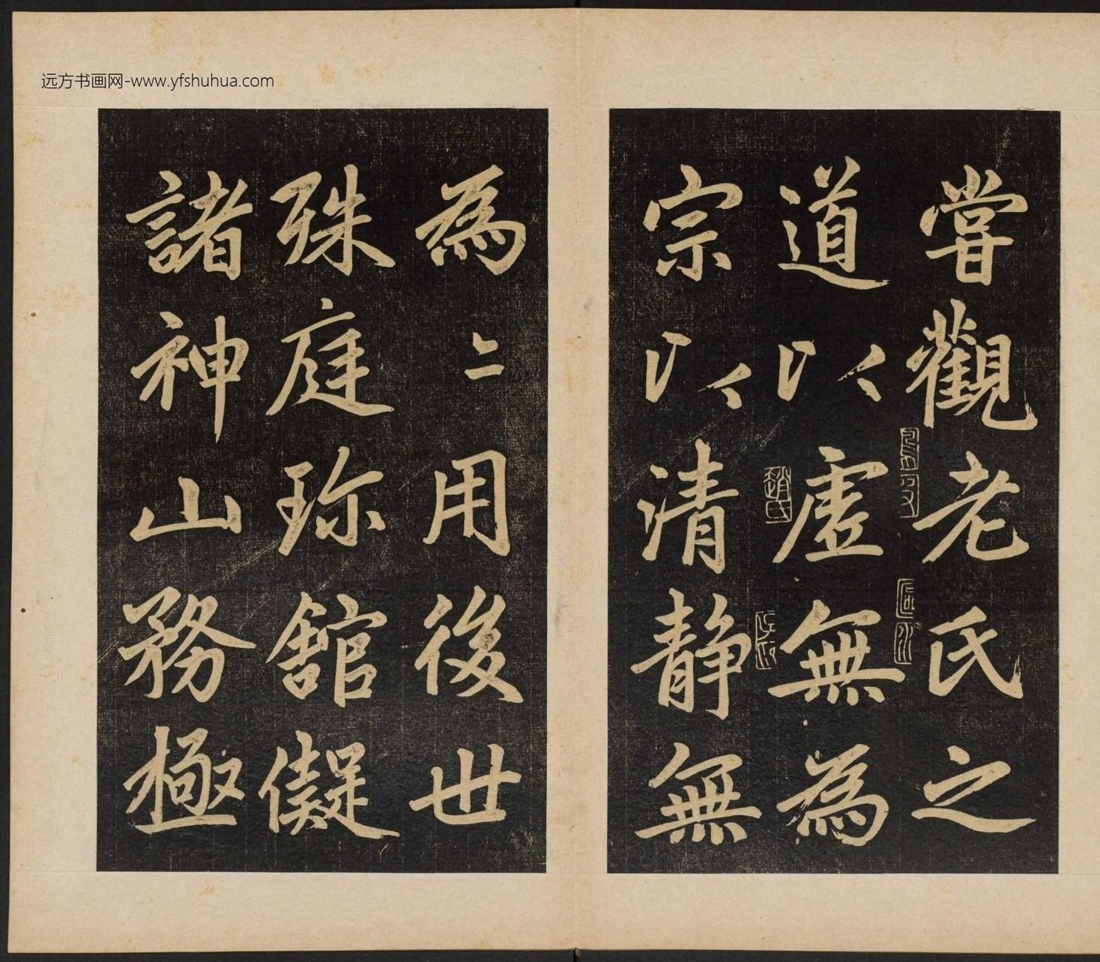 远方书画网-www.yfshuhua.com
嘗觀老氏之
道以虛無為
宗以清静無
為〻用後世
殊庭珎舘儗
諸神山務極
趙氏